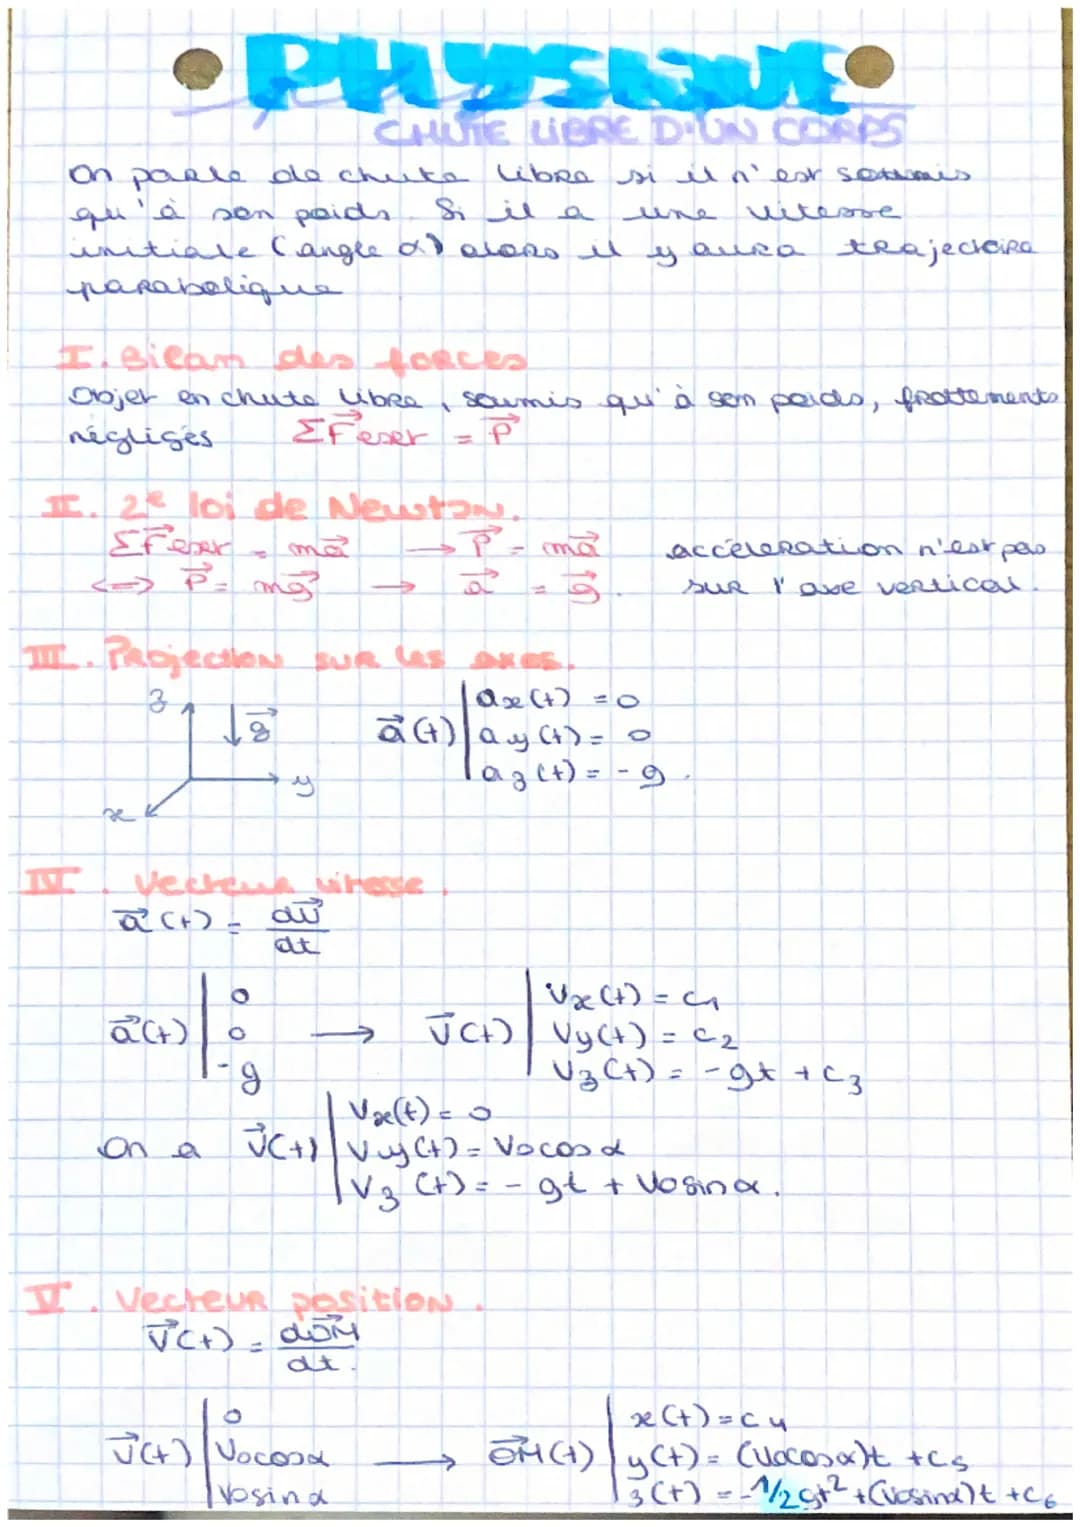 PHYSIQUE
CHUTE LIBRE D'UN CORPS
On parle de chute libre si il n'est soumis
qu'à son poids. Si il a une vitesse
initiale (angle α) alors il y aura trajectoire
parabolique
I. Bilan des forces
Objet en chute libre, soumis qu'à son poids, frottements
négligés ΣF⃗exer = P⃗
II. 2e loi de Newton.
ΣF⃗exer = ma⃗ → P⃗ = ma⃗ accéleration n'est pas
<=> P⃗ = mg⃗ → a⃗ = g⃗. sur l'axe vertical.
III. Projection sur les axes.
z g⃗ y x
a⃗(t) | ax(t) = 0
ay(t) = 0
az(t) = -g.
IV. Vecteur vitesse.
a⃗(t) = dv⃗/dt
a⃗(t) | 0 → v⃗(t) | Vx(t) = C1
0 Vy(t) = C2
-g Vz(t) = -gt + C3
On a v⃗(t) | Vx(t) = 0
Vy(t) = V0cosα
Vz(t) = -gt + V0sinα.
V. Vecteur position.
v⃗(t) = dOM⃗/dt.
v⃗(t) | 0 → OM⃗(t) | x(t) = C4
V0cosα y(t) = (V0cosα)t + C5
V0sinα z(t) = -1/2gt² + (V0sinα)t + C6